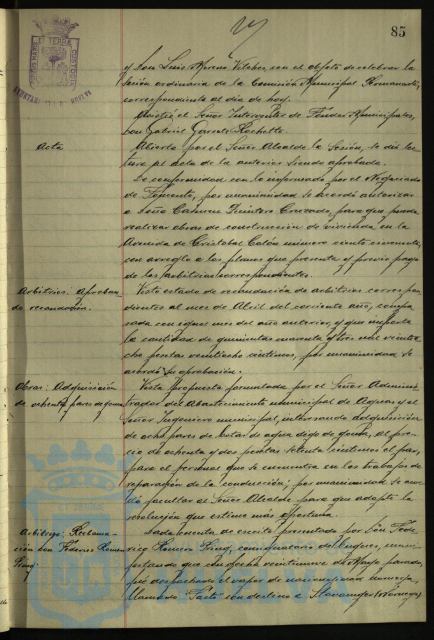 85
y Don Luis Moreno Vilches con el objeto de celebrar la
sesión ordinaria de la Comisión Municipal Permanente,
correspondiente al día de hoy.
Asistió el Señor Interventor de Fondos Municipales,
Don Gabriel Garrell Rochette.
Acta
Abierto por el Señor Alcalde la sesión, se dió lec-
tura al acta de la anterior siendo aprobada.
De conformidad con lo informado por el Negociado
de Fomento, por unanimidad se acordó autorizar
a Doña Carmen Quintero Cruzado, para que pueda
realizar obras de construcción de vivienda en la
Avenida de Cristobal Colón número ciento cincuenta,
con arreglo a los planos que presenta y previo pago
de los arbitrios correspondientes.
Arbitrios: Aproban-
do recaudación.
Visto estado de recaudación de arbitrios correspon-
dientes al mes de Abril del corriente año, compa-
rada con igual mes del año anterior y que importa
la cantidad de quinientas cuarenta y tres mil veintio-
cho pesetas veintiocho céntimos, por unanimidad se
acordó su aprobación.
Obras: Adquisición
de ochenta pares de goma
Vista propuesta formulada por el Señor Adminis-
trador del Abastecimiento municipal de Aguas y el
Señor Ingeniero municipal, interesando adquisición
de ocho pares de botas de agua de goma, al pre-
cio de ochenta y dos pesetas setenta céntimos el par,
para el personal que se encuentra en los trabajos de
reparación de la conducción; por unanimidad se acor-
dó facultar al Señor Alcalde para que adopte la
resolución que estime más oportuna.
Arbitrios: Reclama-
ción Don Federico Romero
Pring.
Dada cuenta de escrito presentado por Don Fede-
rico Romero Pring, consignatario de buques, mani-
festando que con fecha veintinueve de Mayo pasado,
fué despachado el vapor de nacionalidad noruega,
llamado con destino a Stavanger (Noruega)